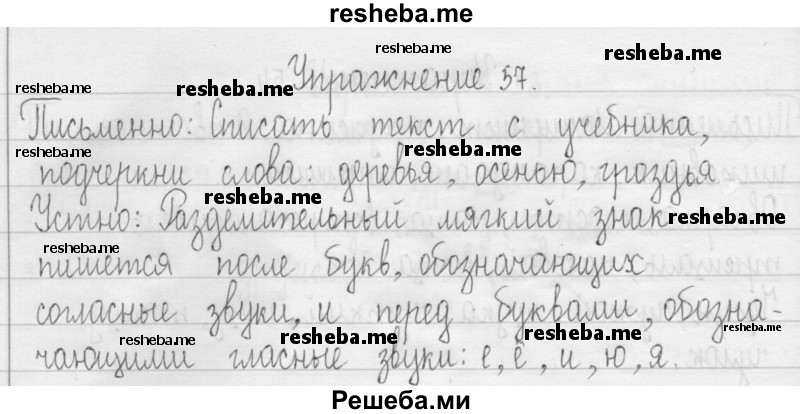 resheba.me
resheba.me
resheba.me
Упражнение 57.
resheba.me resheba.me
Письменно: Списать текст с учебника,
resheba.me resheba.me
подчеркни слова: деревья, осенью, гроздья
resheba.me
Устно: Разделительный мягкий знак
resheba.me
resheba.me
пишется после букв, обозначающих
resheba.me
согласные звуки, и перед буквами, обозна-
resheba.me resheba.me resheba.me resheba.me
чающими гласные звуки: е, ё, и, ю, я.
Решеба.ми